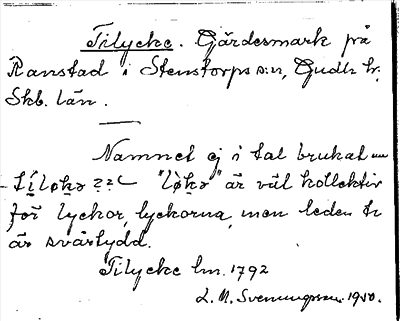 Tilycke. Gärdesmark på
Ranstad i Stenstorps s:n, Gudh. hr.
Skb. län.
Namnet ej i tal brukat
"lø̀kə" är väl kollektiv
för lyckor, lyckorna, men leden ti
är svårtydd.
Tilycke lm. 1792
L. M. Svenungsson. 1950.